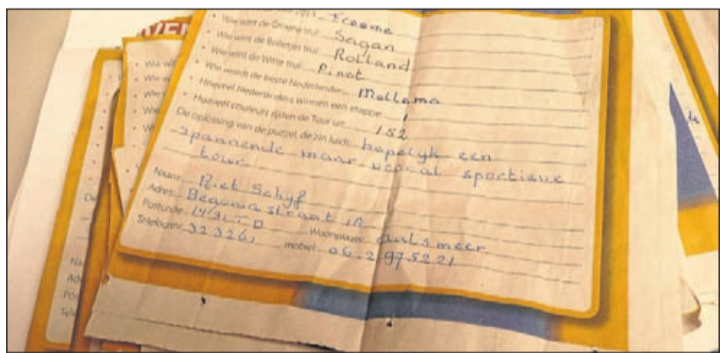 Froome
• Wie wint de Groene trui Sagan
• Wie wint de Bolletjes trui Rolland
• Wie wint de Witte trui Pinot
• Wie wordt de beste Nederlander Mollema
• Hoeveel Nederlanders winnen een etappe 1
• Hoeveel coureurs rijden de Tour uit: 152
De oplossing van de puzzel, de zin luidt: hopelyk een
spannende maar vooral sportieve
tour
Naam: Riet Schyf
Adres: straat
Postcode: 1431 Woonplaats: aalsmeer
Telefoonnr: 323261 mobiel: 06-